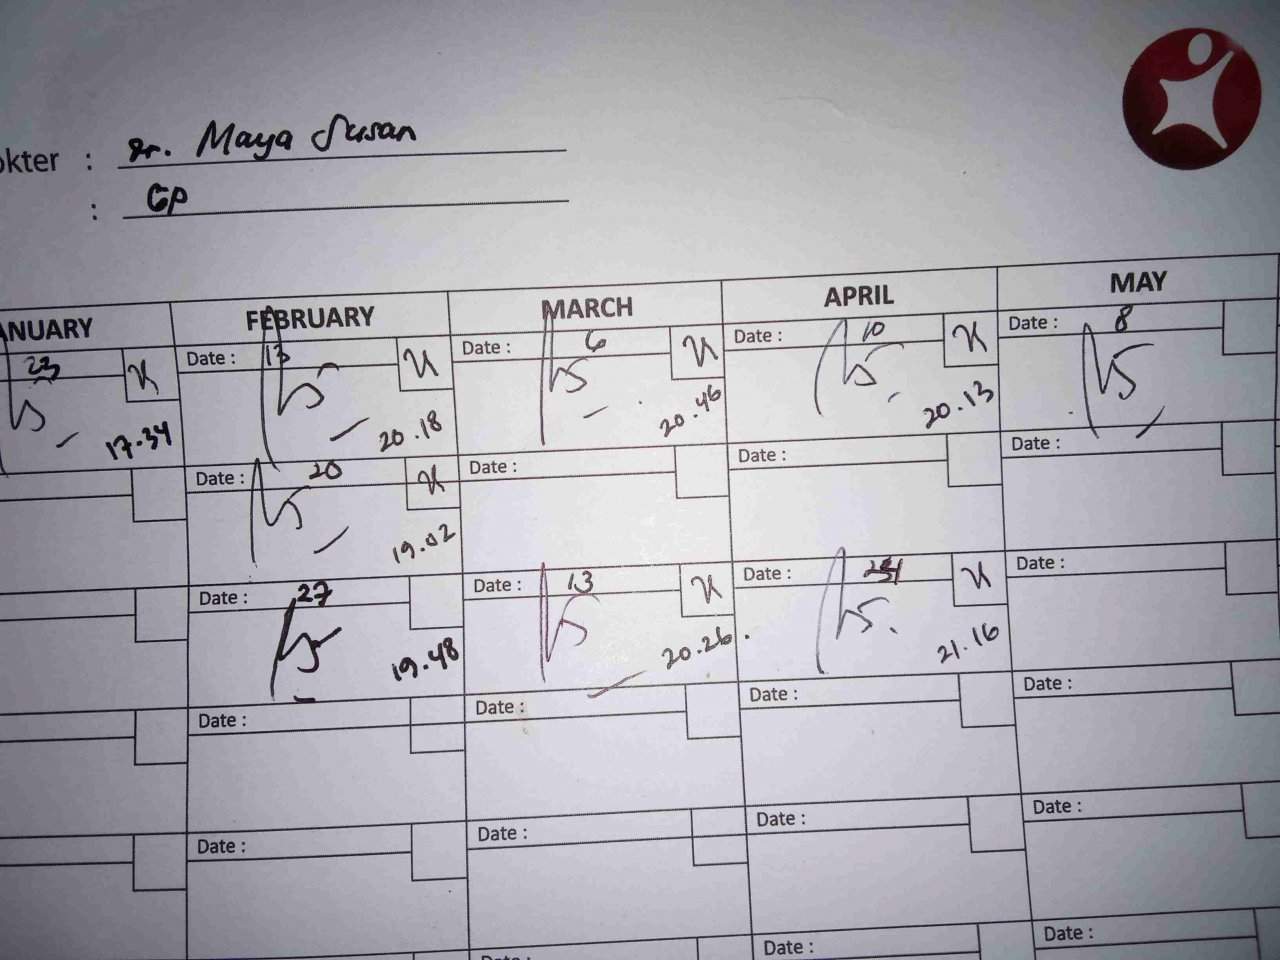 okter : Dr. Maya Susan
: GP
ANUARY FEBRUARY MARCH APRIL MAY
23 Date : 13 Date : 6 Date : 10 Date : 8
17.34 20.18 20.46 20.13
Date : 20 Date : Date : Date :
19.02
Date : 27 Date : 13 Date : Date :
19.48 20.26 . 21.16
Date : Date : Date : Date :
Date : Date : Date : Date :
Date : Date : Date :